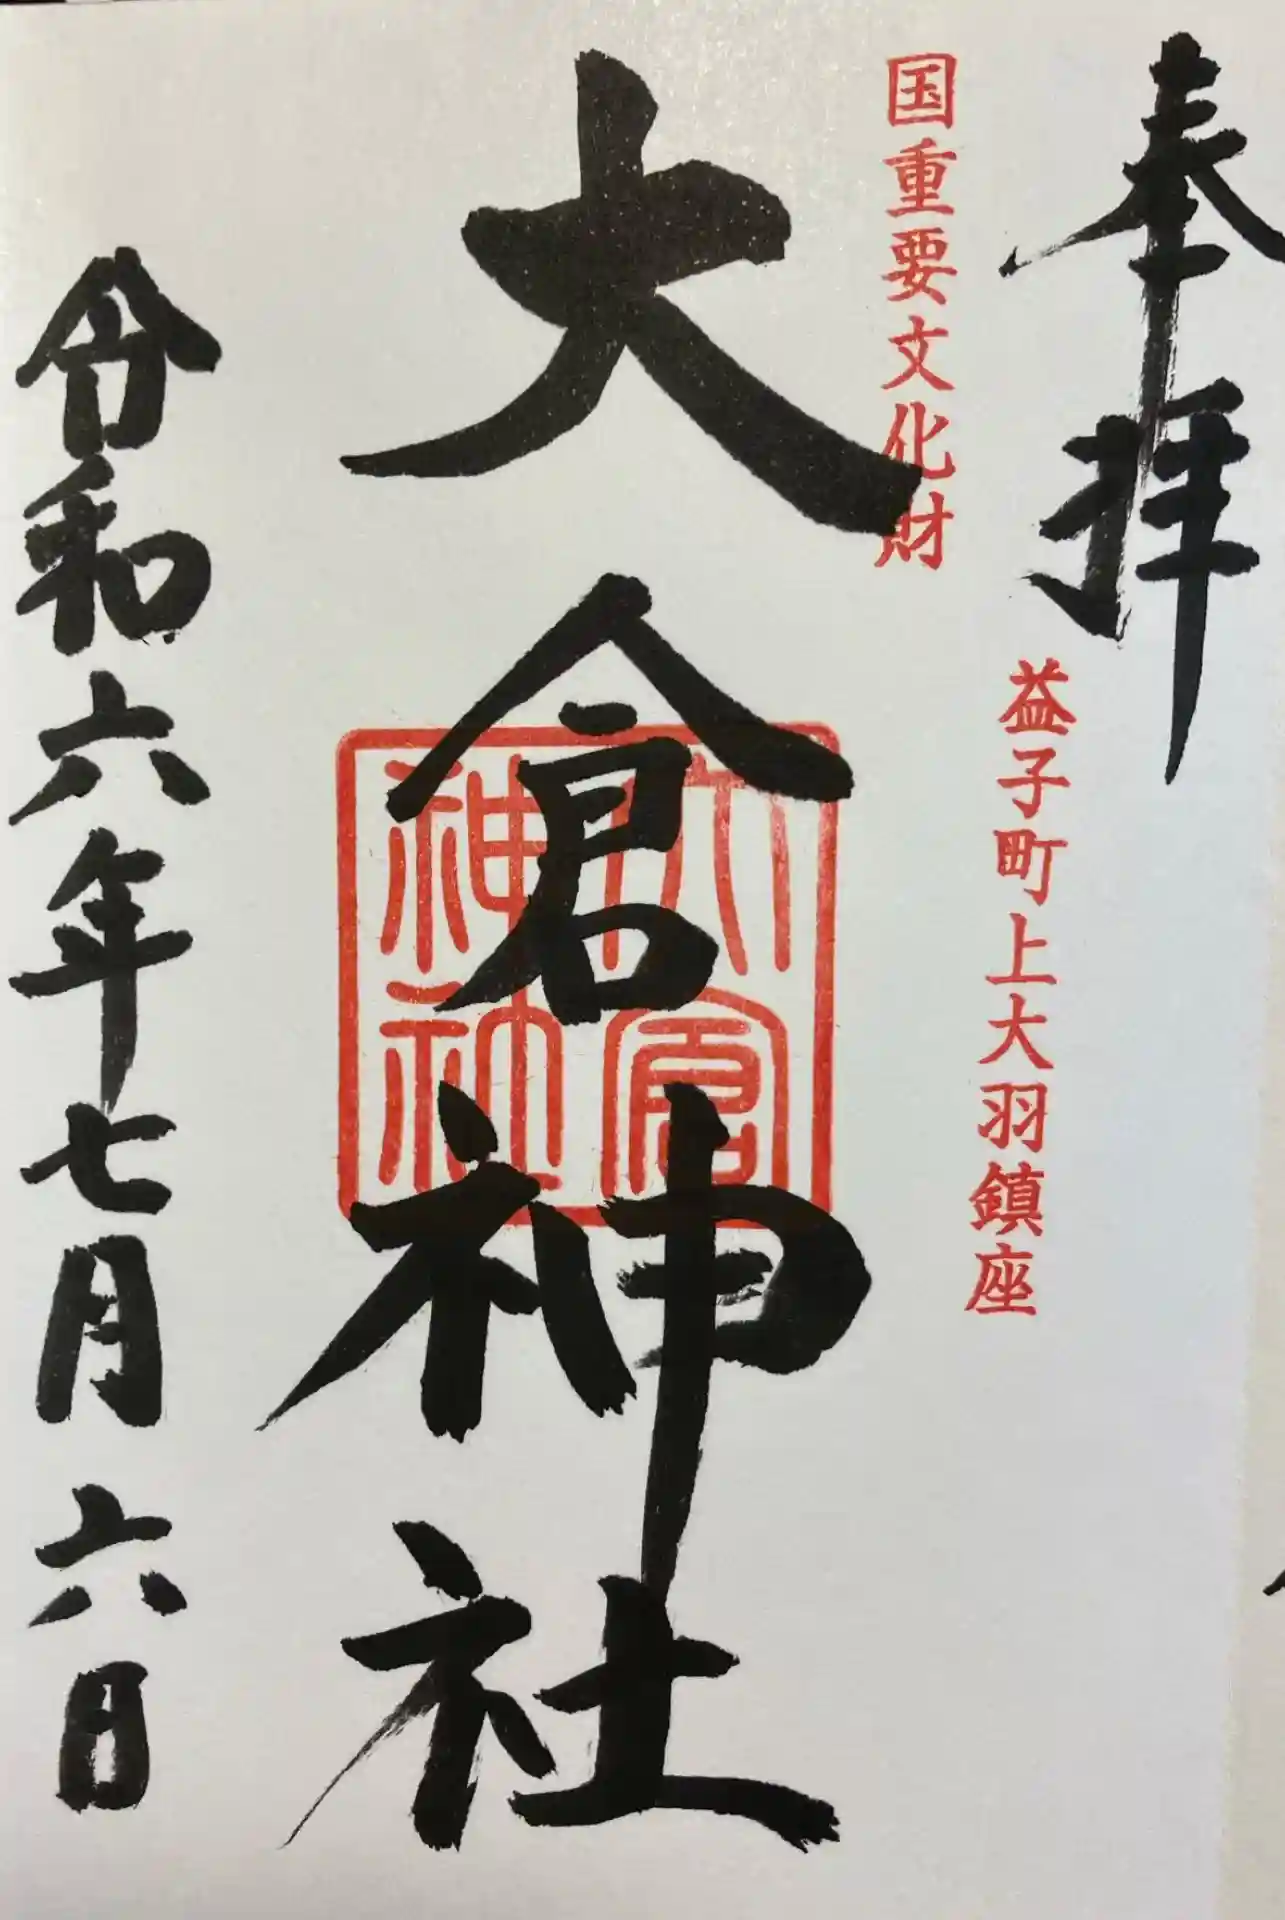 奉拝
国重要文化財
益子町上大羽鎮座
大倉神社
大倉神社
令和六年七月六日